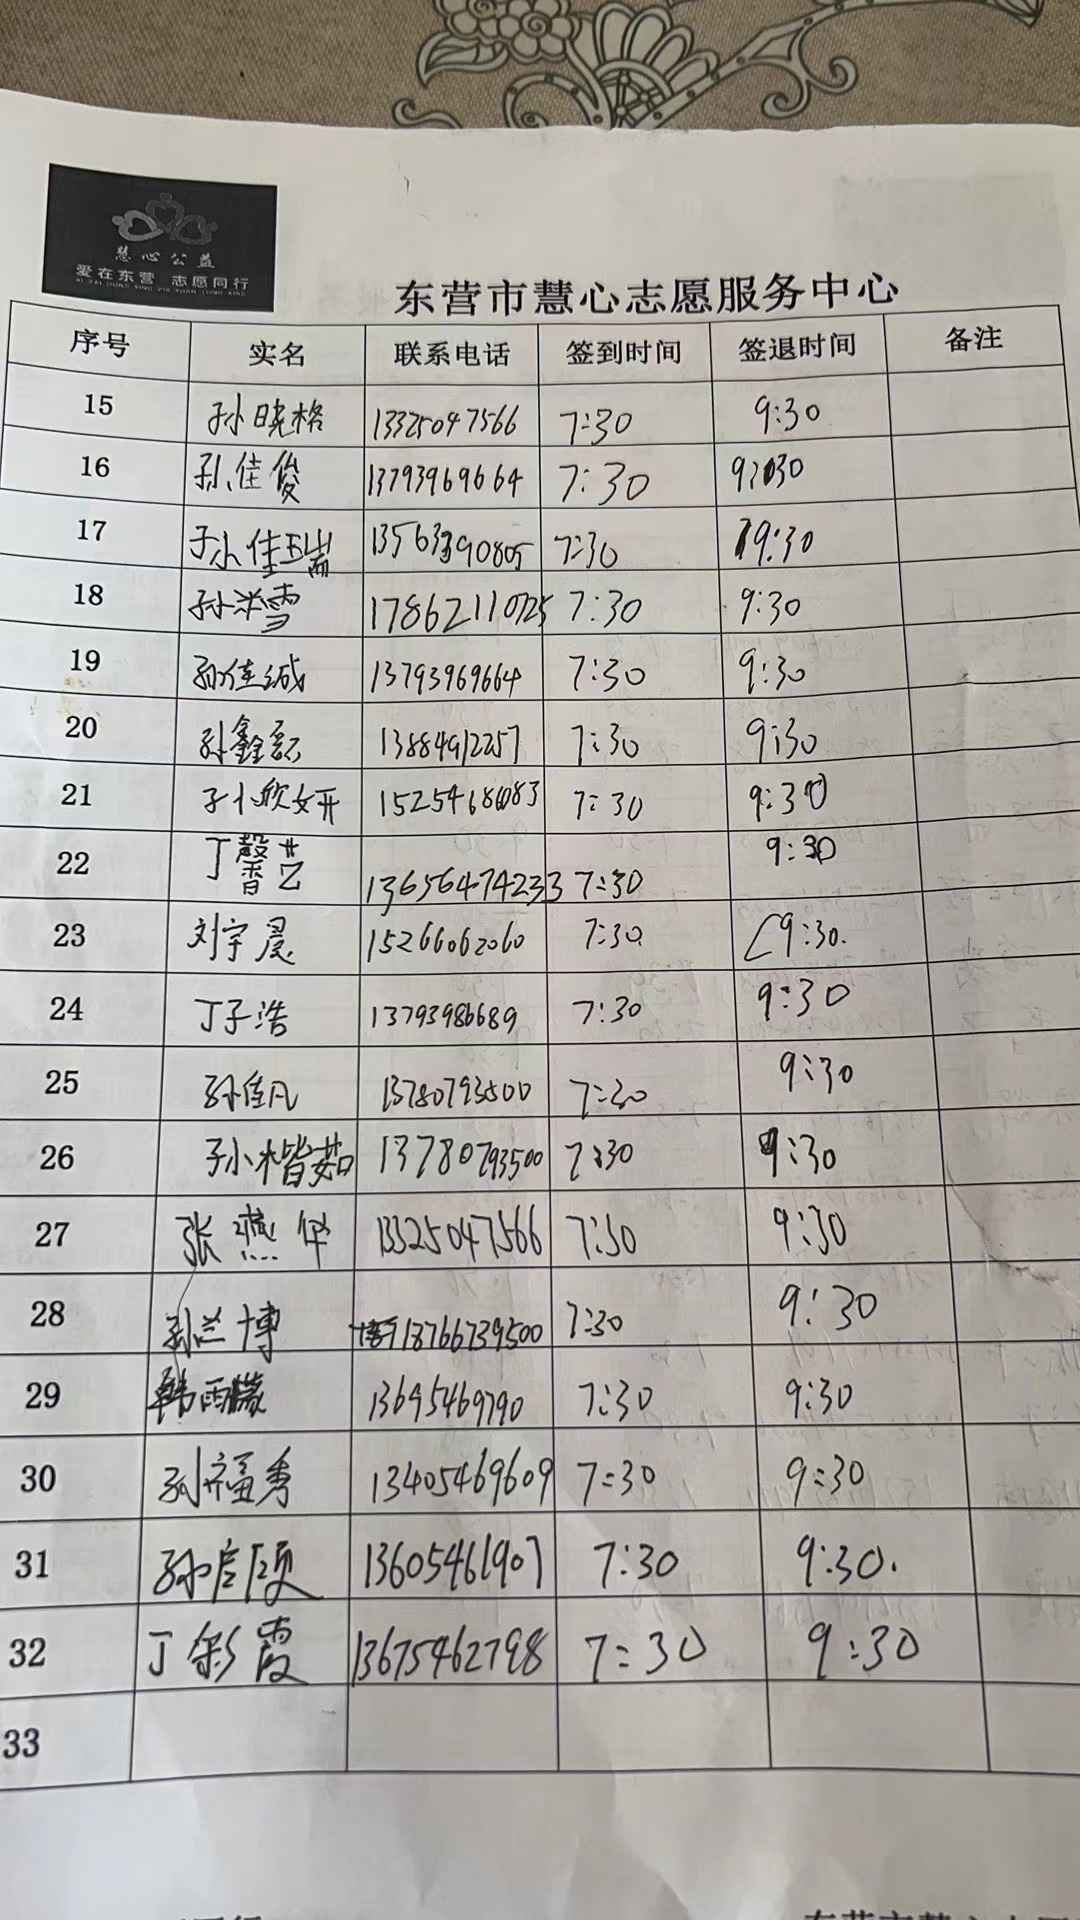 慧心公益
爱在东营 志愿同行
AI ZAI DONG YING ZHI YUAN TONG XING
东营市慧心志愿服务中心
序号 实名 联系电话 签到时间 签退时间 备注
15 孙晓格 13325047566 7:30 9:30
16 孙佳俊 13793969664 7:30 9:30
17 孙佳瑞 13563390805 7:30 9:30
18 孙洋雪 17862110725 7:30 9:30
19 孙佳诚 13793969664 7:30 9:30
20 孙鑫磊 13884912257 7:30 9:30
21 孙欣妍 7:30 9:30
22 丁馨艺 13656474233 7:30 9:30
23 刘宇晨 15266062060 7:30. 9:30.
24 丁子浩 13793986689 7:30 9:30
25 孙佳凡 13780793500 7:30 9:30
26 孙楷茹 13780793500 7:30 9:30
27 张燕华 13325047566 7:30 9:30
28 孙兰博 18766739500 7:30 9:30
29 韩雨朦 13695469790 7:30 9:30
30 孙福秀 13405469609 7:30 9:30
31 孙启硕 13605461907 7:30 9:30.
32 丁彩霞 13675462798 7:30 9:30
33